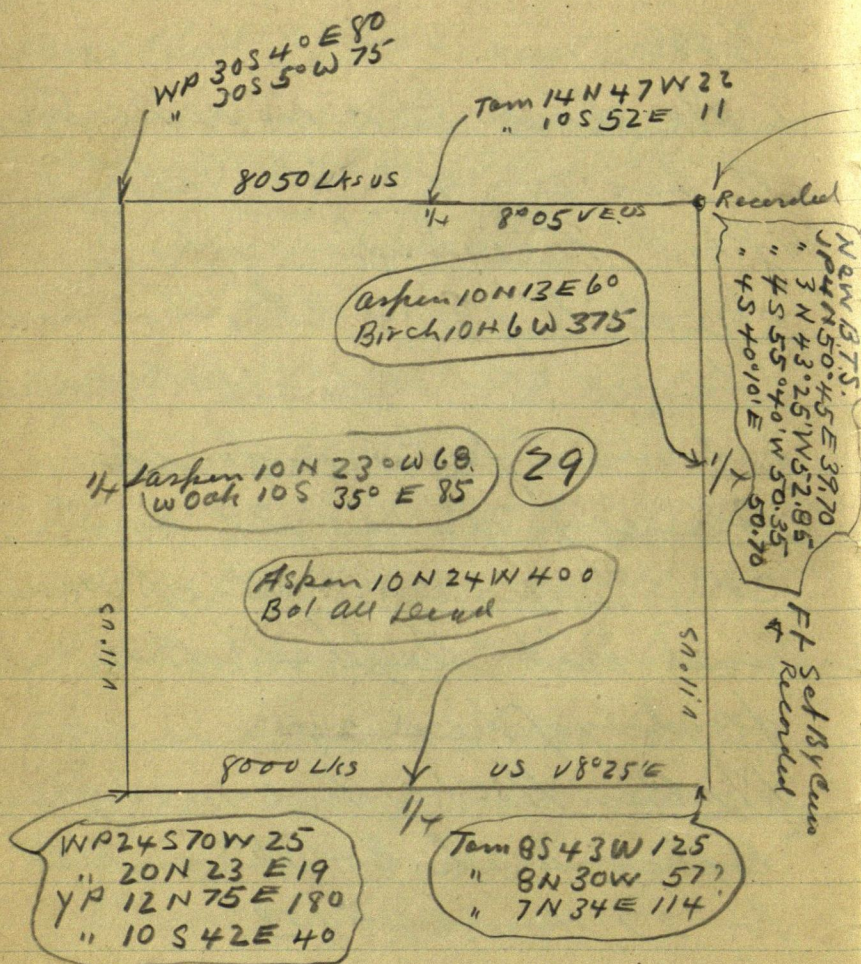 WP 30S 4° E 80
" 30S 5° W 75
Tam 14 N 47 W 22
" 10 S 52 E 11
8050 Lks US
1/4
8°05 V E. US
Recorded
New B.T.S.
JP 4 N 50°45 E 39.70
" 3 N 43°25' W 52.85
" 4 S 55°40' W 50.35
" 4 S 40°10' E 50.70
Ft Set By Cuin
& Recorded
aspen 10 N 13 E 60
Birch 10 N 6 W 375
1/4
1/4
aspen 10 N 23° W 68
W Oak 10 S 35° E 85
29
Aspen 10 N 24 W 400
Bal All Dead
V 11° US
V 11° US
8000 Lks
US V8°25'E
1/4
WP 24 S 70 W 25
" 20 N 23 E 19
YP 12 N 75 E 180
" 10 S 42 E 40
Tam 8 S 43 W 125
" 8 N 30 W 57?
" 7 N 34 E 114